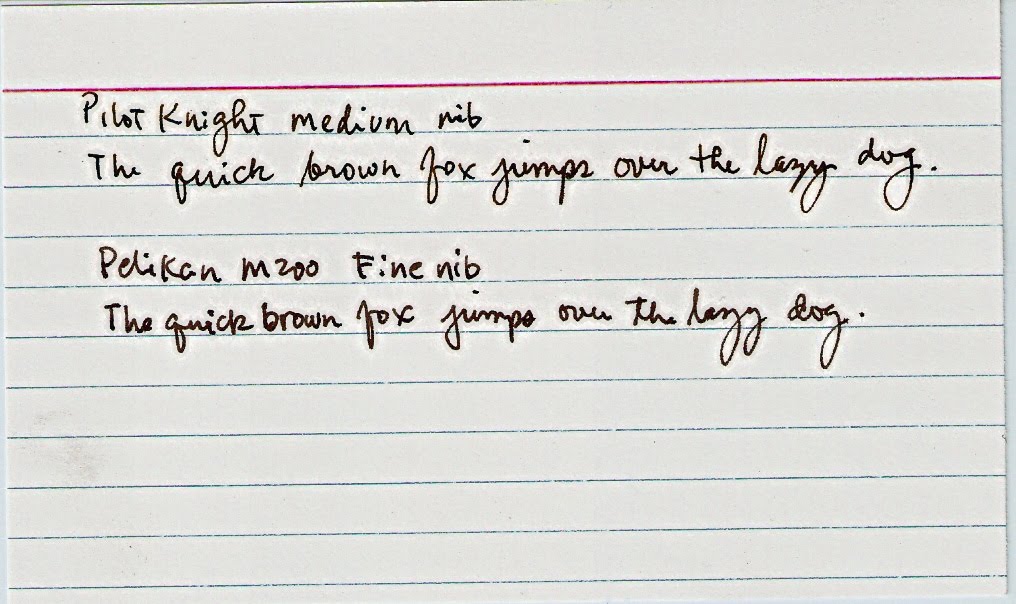 Pilot Knight medium nib
The quick brown fox jumps over the lazy dog.
Pelikan M200 Fine nib
The quick brown fox jumps over the lazy dog.